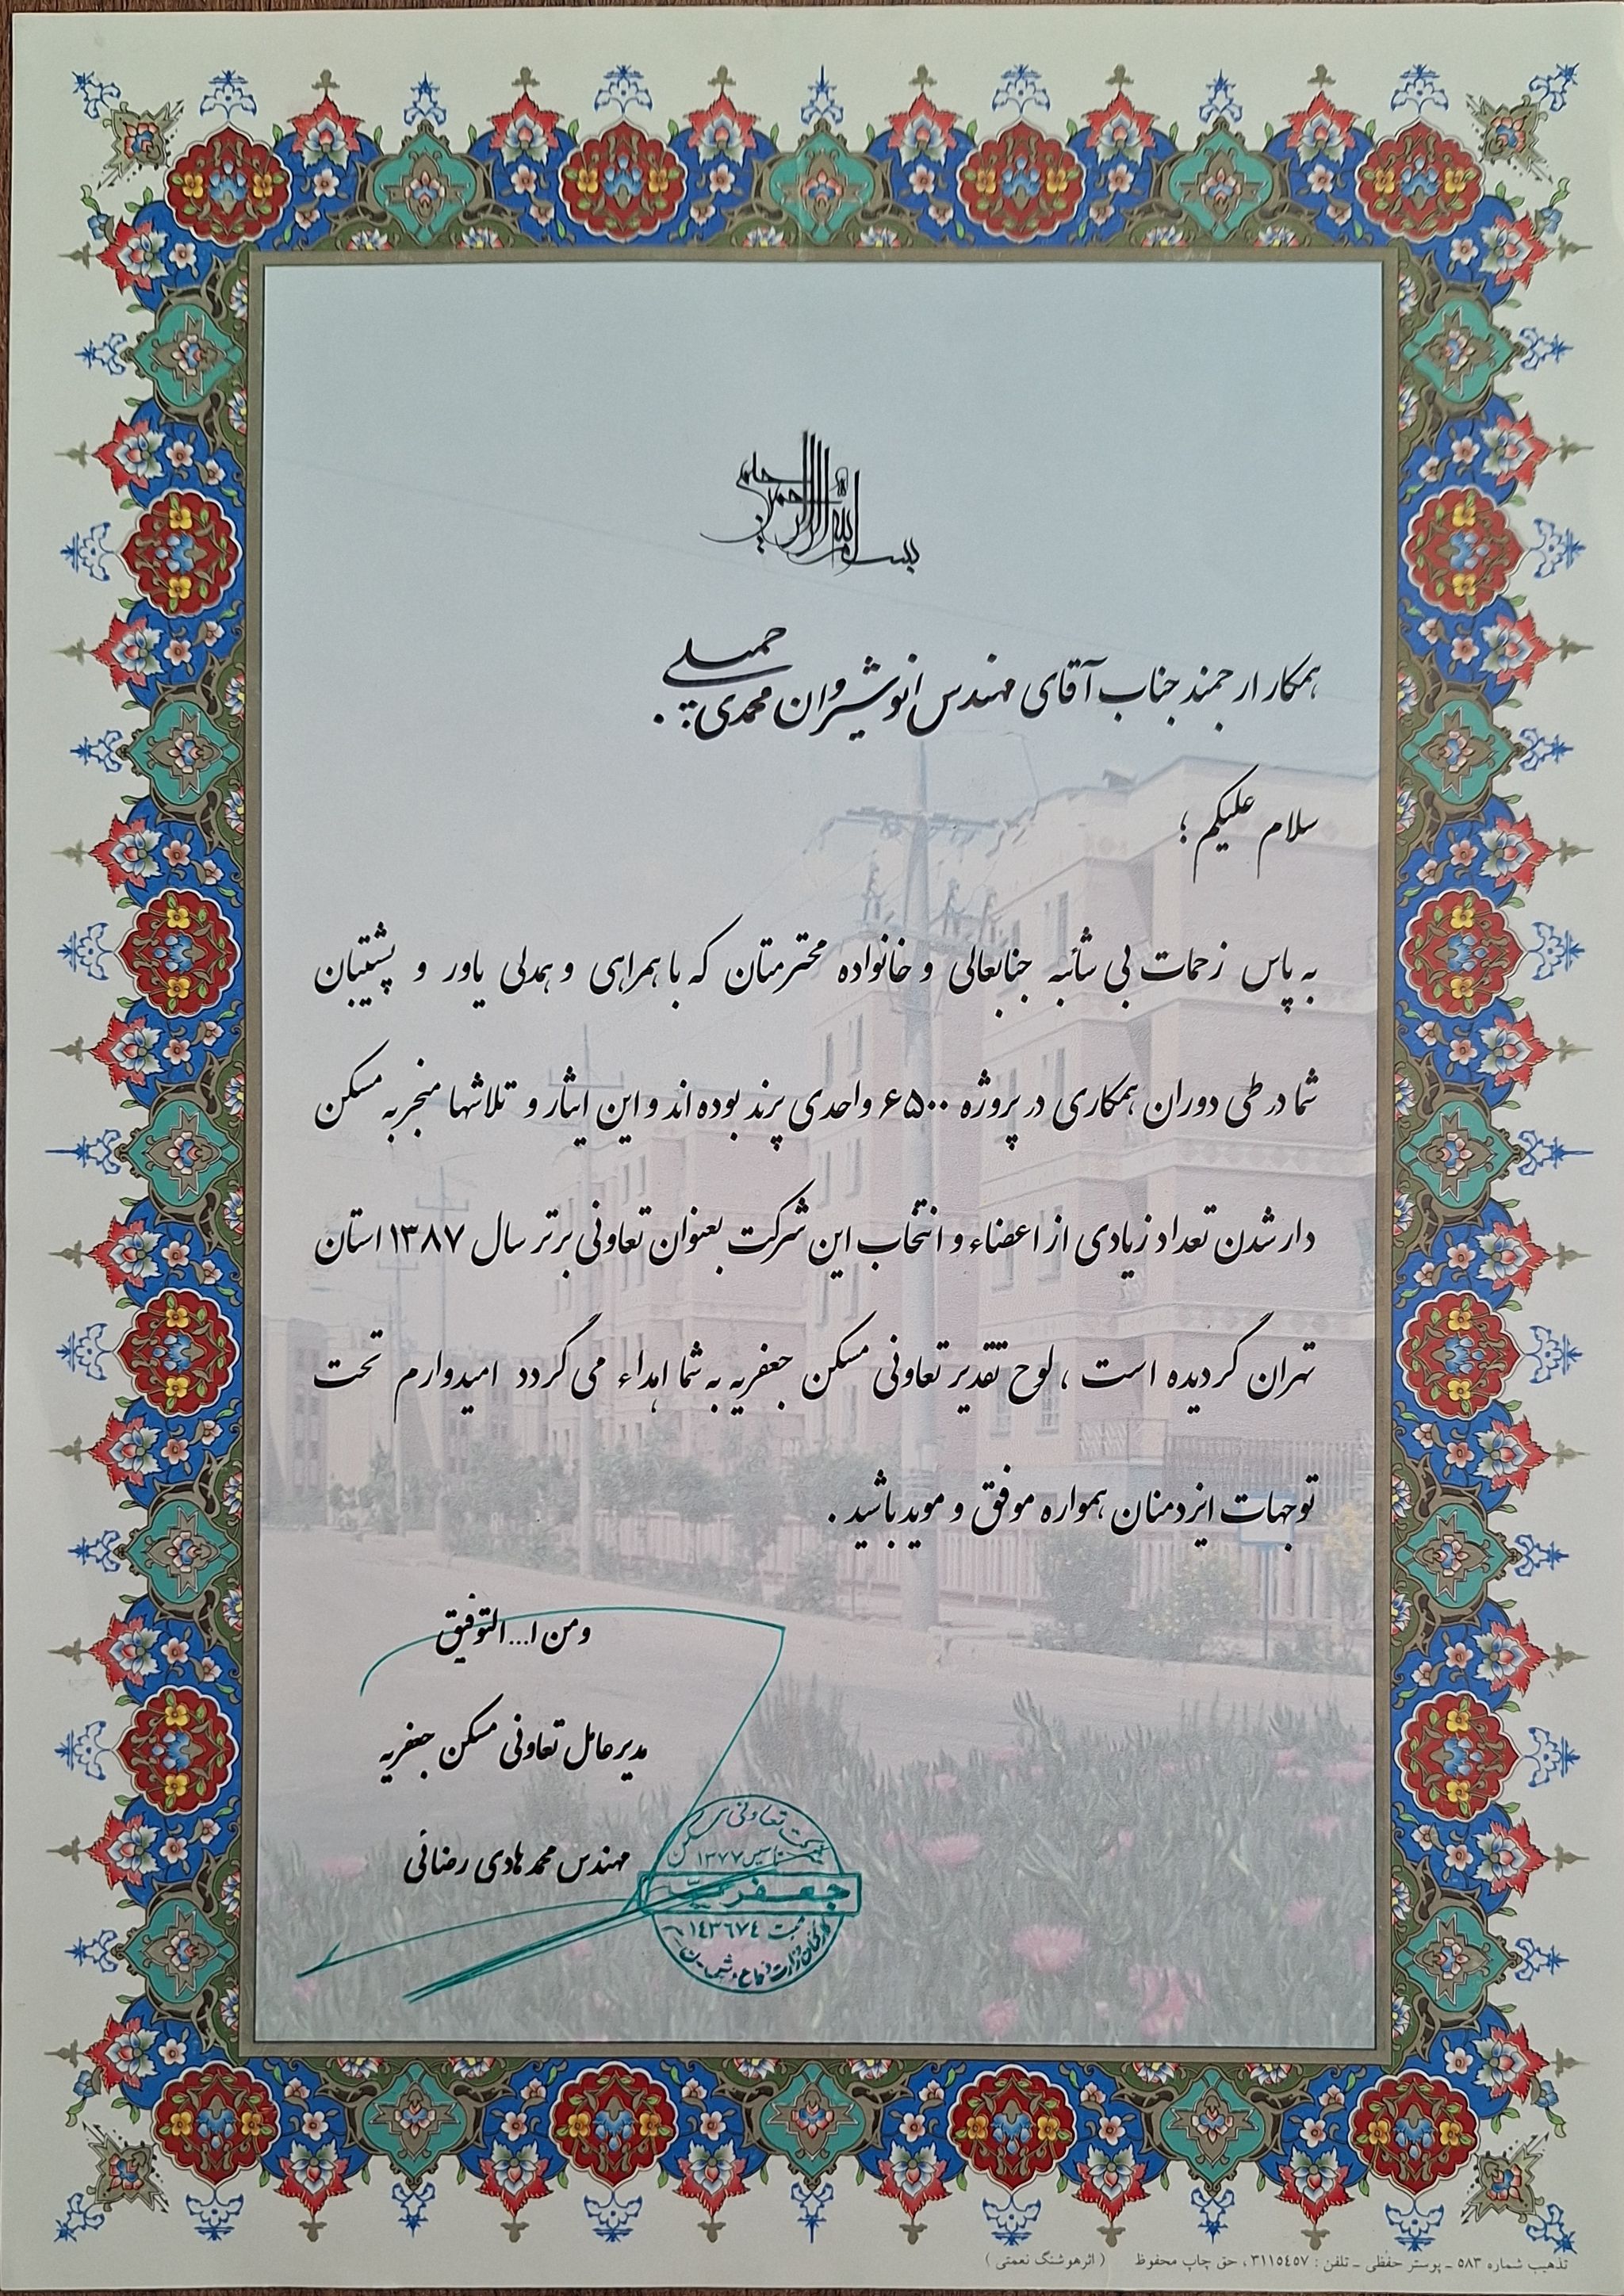 بسم الله الرحمن الرحیم
همکار ارجمند جناب آقای مهندس انوشیروان محمدی
سلام علیکم ؛
به پاس زحمات بی شائبه جنابعالی و خانواده محترمتان که با همراهی و همدلی یاور و پشتیبان
شما در طی دوران همکاری در پروژه ۶۵۰۰ واحدی پرند بوده اند و این ایثار و تلاشها منجر به مسکن
دار شدن تعداد زیادی از اعضاء و انتخاب این شرکت بعنوان تعاونی برتر سال ۱۳۸۷ استان
تهران گردیده است ، لوح تقدیر تعاونی مسکن جعفریه به شما اهداء می گردد امیدوارم تحت
توجهات ایزدمنان همواره موفق و موید باشید .
و من ا... التوفیق
مدیرعامل تعاونی مسکن جعفریه
مهندس محمد هادی رضائی
شرکت تعاونی مسکن
تاسیس ۱۳۷۷
جعفریه
ثبت ۱٤۳٦۷٤
کارکنان وزارت دفاع
تذهیب شماره ۵۸۳ ـ پوستر حفظی ـ تلفن : ۳۱۱۵٤۵۷ ، حق چاپ محفوظ ( اثر هوشنگ نعمتی )